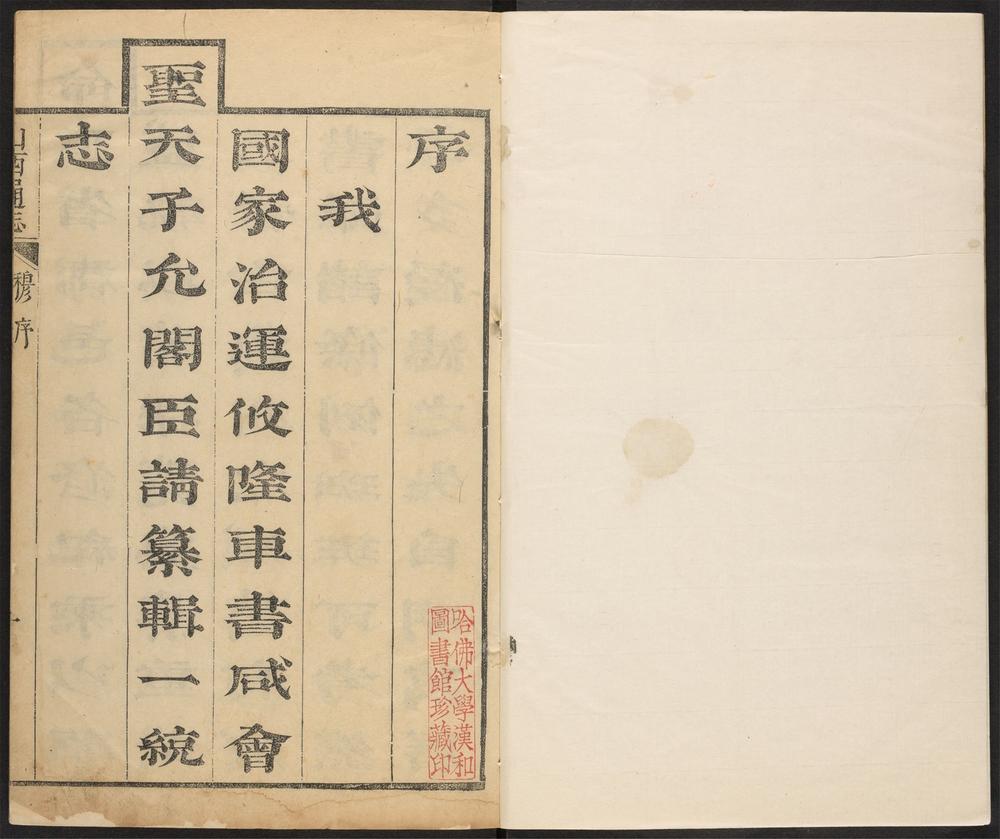 序
我
國家治運攸隆車書咸會
聖天子允閣臣請纂輯一統
志
山西通志
穆序
一
哈佛大學漢和
圖書館珍藏印